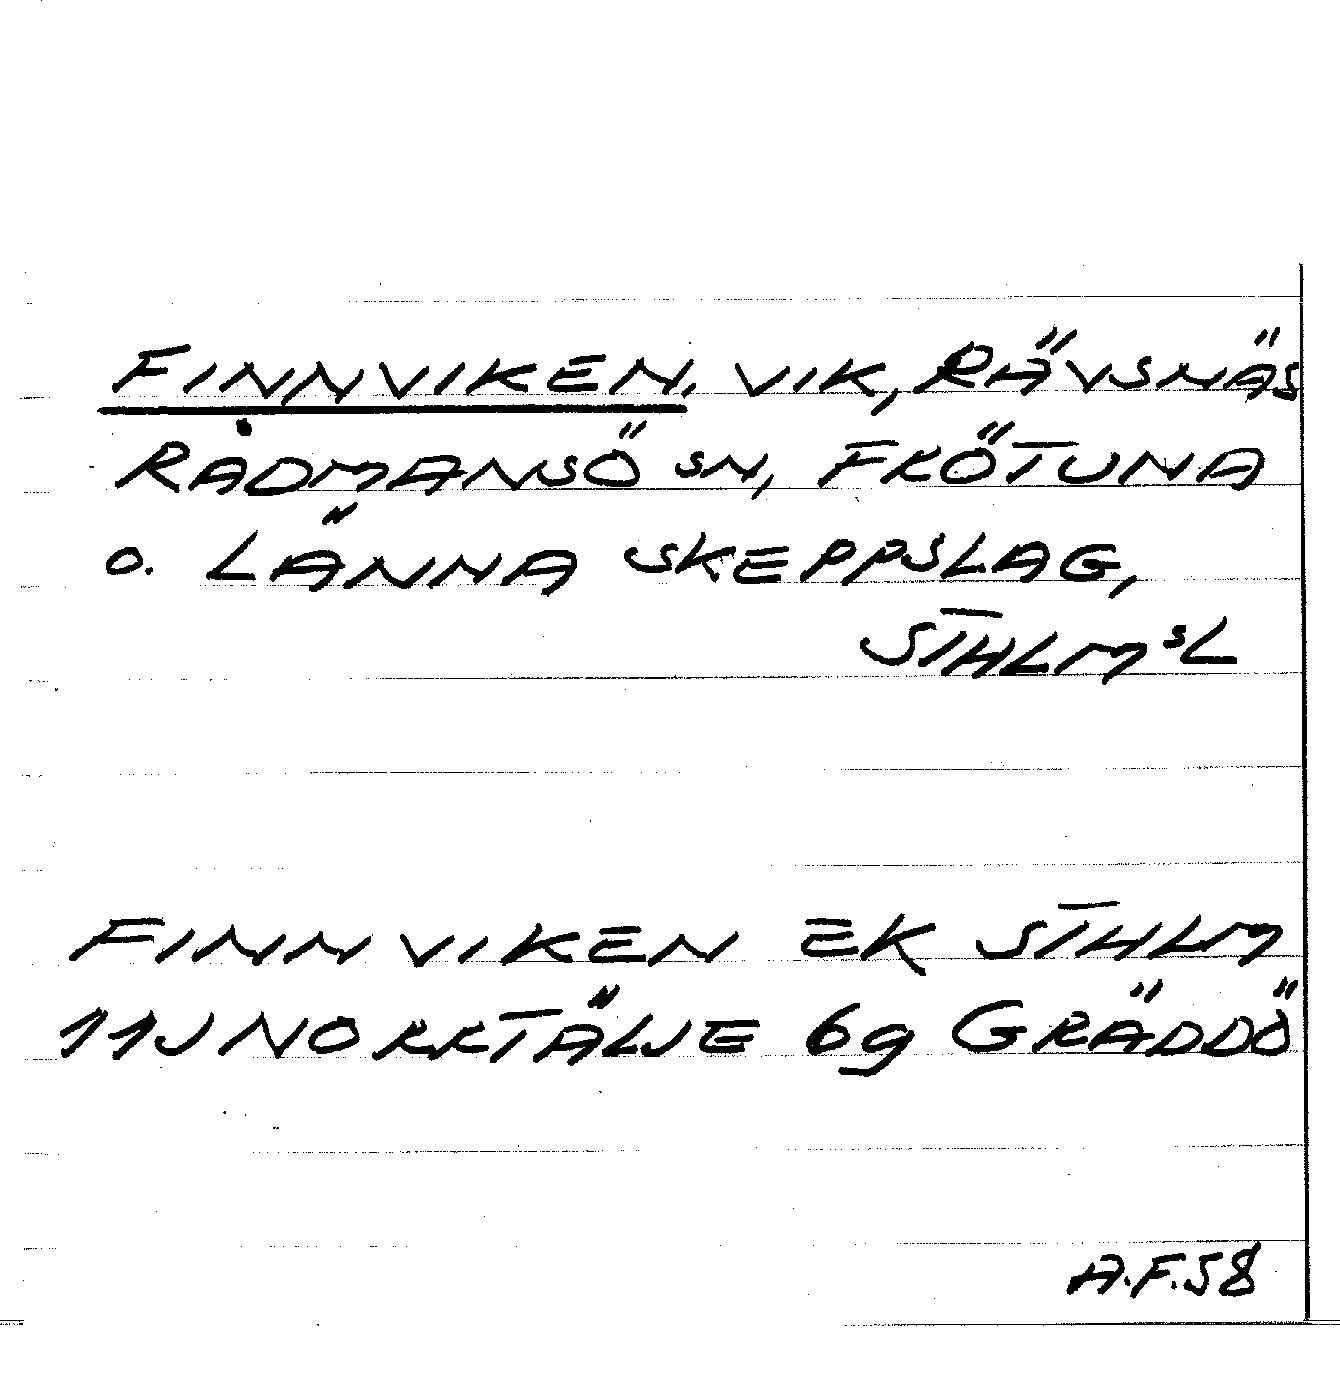 FINNVIKEN, VIK, RÄVSNÄS
RÅDMANSÖ SN, FRÖTUNA
O. LÄNNA SKEPPSLAG,
STHLMSL
FINNVIKEN EK STHLM
11J NORRTÄLJE 6g GRÄDDÖ
A.F.58